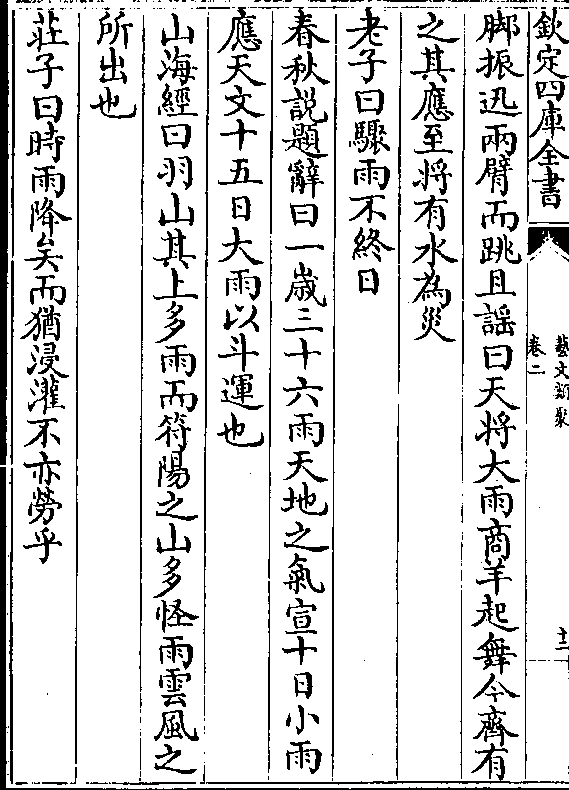 欽定四庫全書
藝文類聚
卷二
十二
脚振迅兩臂而跳且謡曰天將大雨商羊起舞今齊有
之其應至將有水為災
老子曰驟雨不終日
春秋説題辭曰一歳三十六雨天地之氣宣十日小雨
應天文十五日大雨以斗運也
山海經曰羽山其上多雨而符陽之山多怪雨雲風之
所出也
莊子曰時雨降矣而猶浸灌不亦勞乎